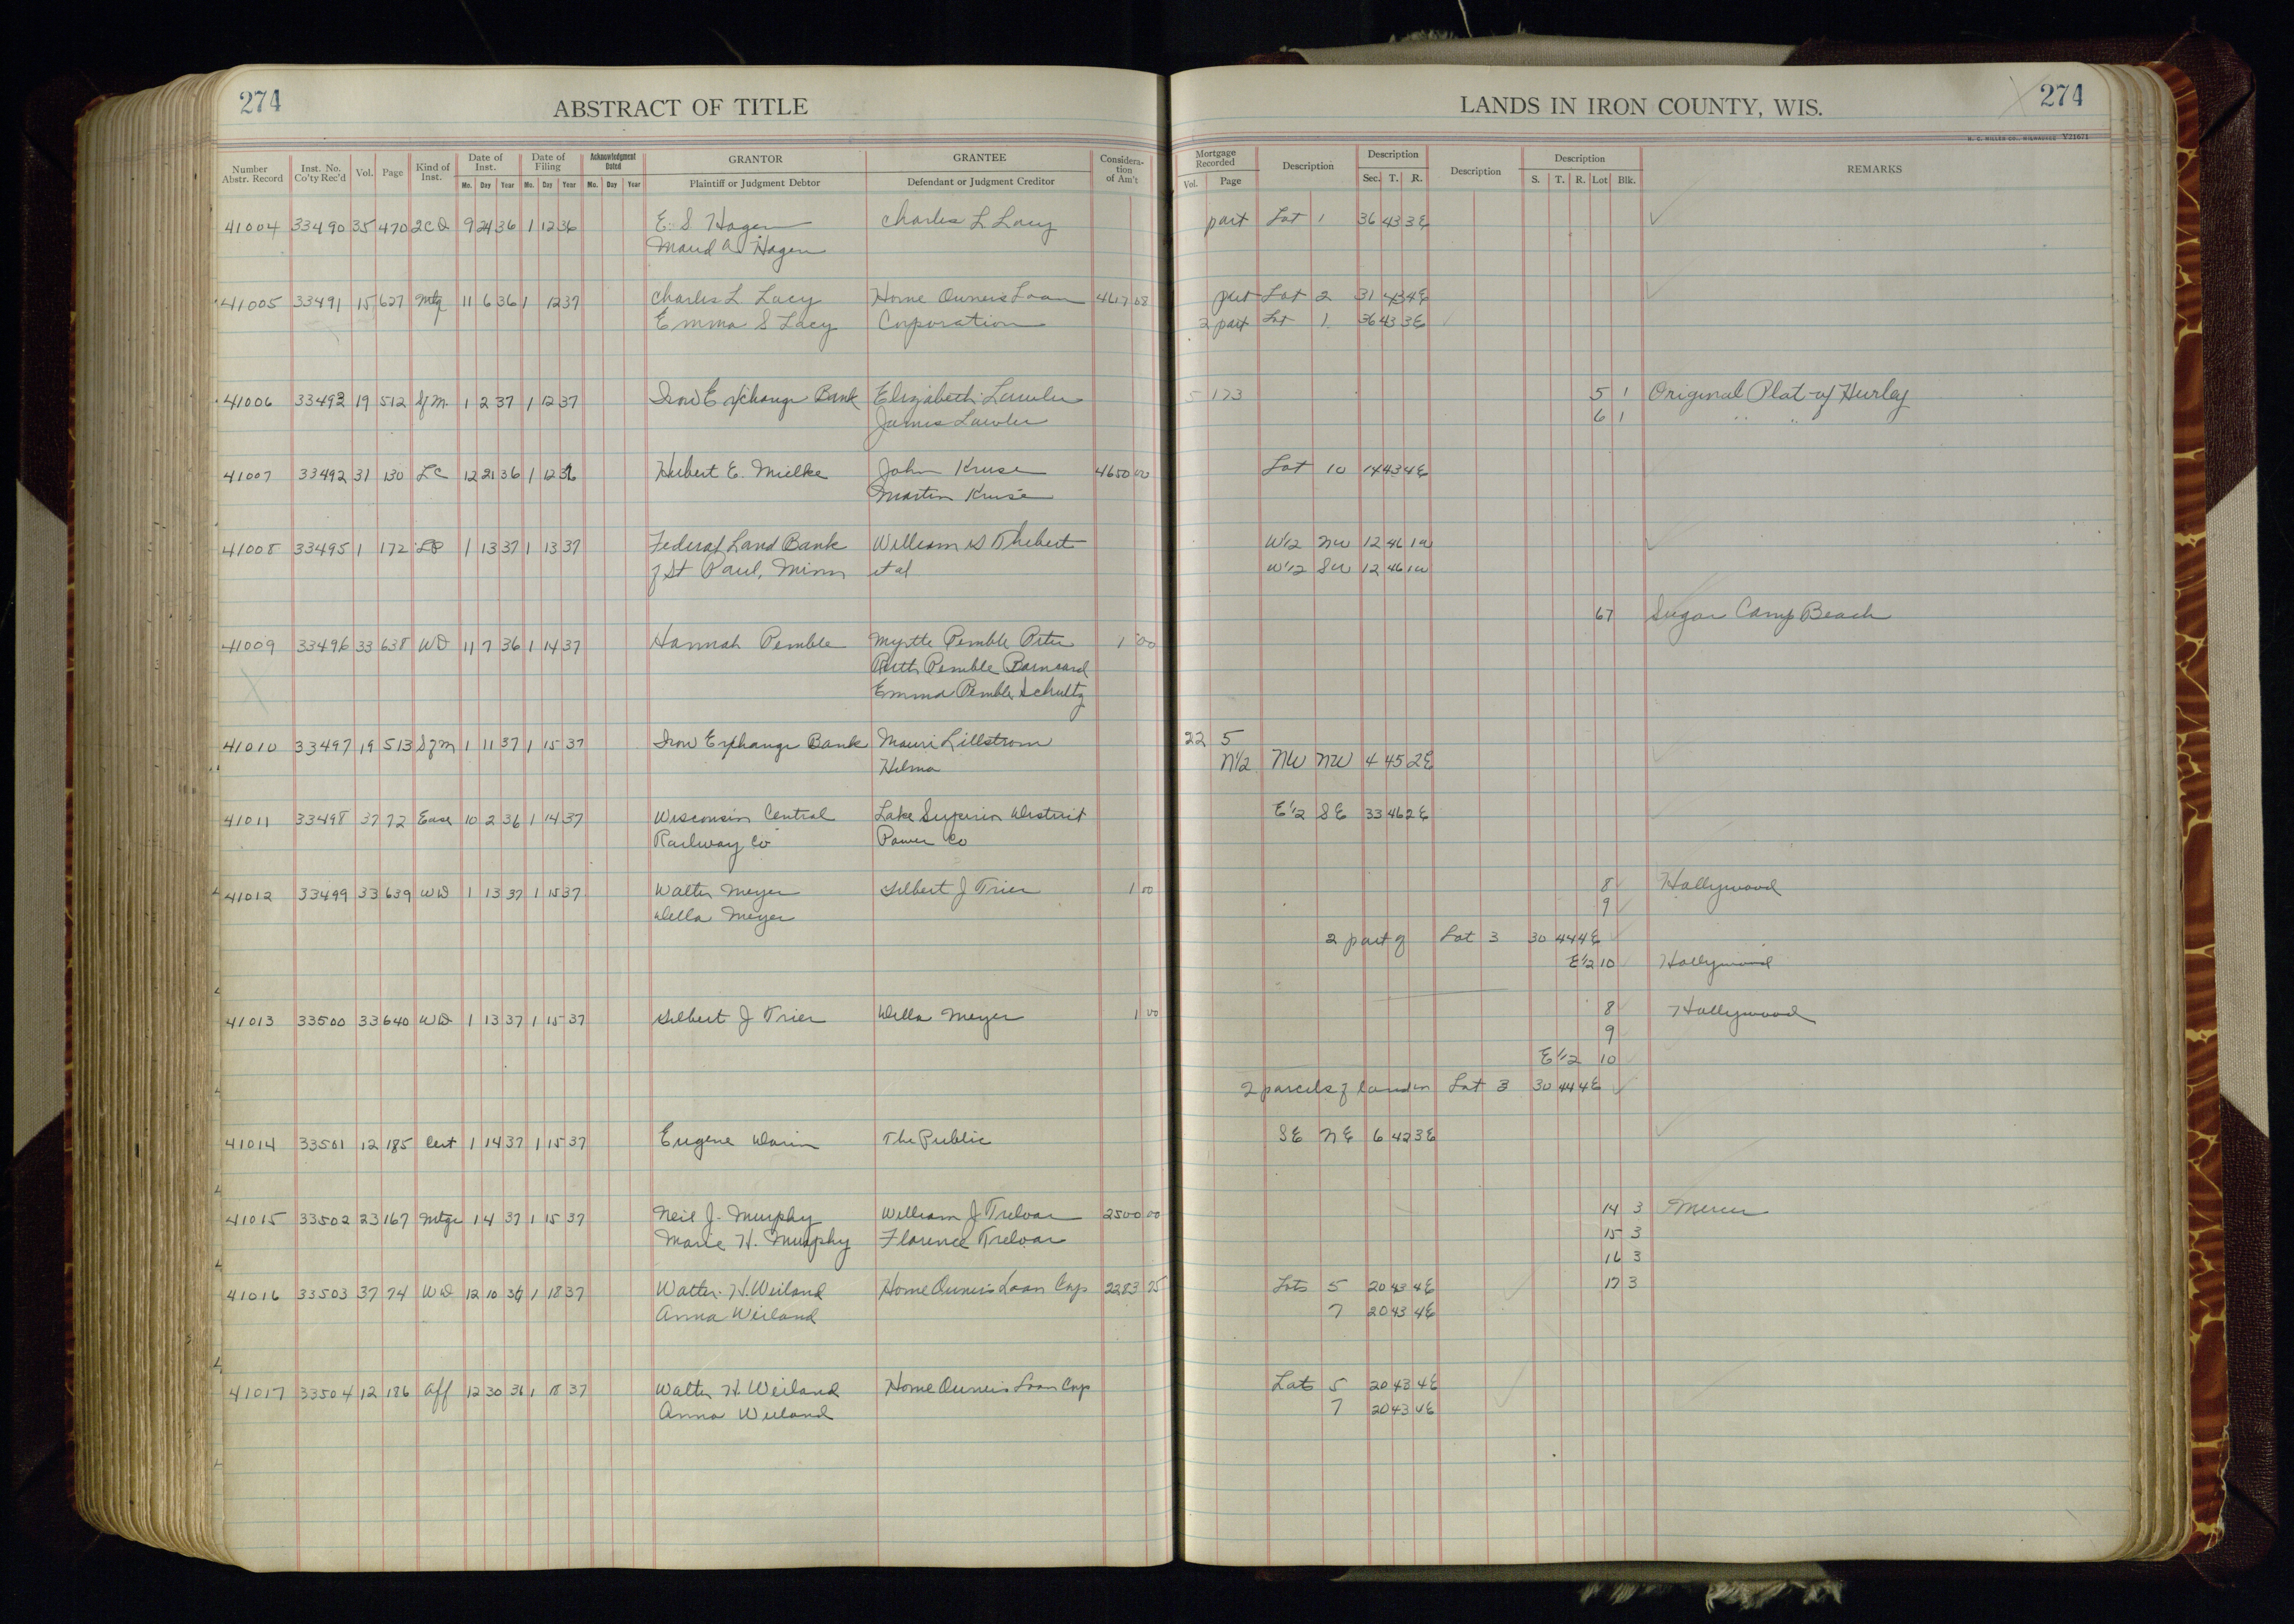 274
ABSTRACT OF TITLE
Number Abstr. Record
Inst. No. Co'ty Rec'd
Vol.
Page
Kind of Inst.
Date of Inst.
Mo. Day Year
Date of Filing
Mo. Day Year
Acknowledgment Dated
Mo. Day Year
GRANTOR
Plaintiff or Judgment Debtor
GRANTEE
Defendant or Judgment Creditor
Considera-tion of Am't
41004 33490 35 470 2CD 9 24 36 1 12 36 E. S Hagen Charles L Lacy
Maud A Hagen
41005 33491 15 627 Mtg 11 6 36 1 12 37 Charles L Lacy Home Owners Loan 4617 08
Emma S Lacy Corporation
41006 33493 19 512 Sfm 1 2 37 1 12 37 Iron Exchange Bank Elizabeth Lawler
James Lawler
41007 33492 31 130 LC 12 21 36 1 12 36 Hubert E. Mielke John Kruse 4650 00
Martin Kruse
41008 33495 1 172 LP 1 13 37 1 13 37 Federal Land Bank William D Thebert
of St Paul, Minn et al
41009 33496 33 638 WD 11 7 36 1 14 37 Hannah Pemble Myrtle Pemble Peter 1 00
Ruth Pemble Barnard
Emma Pemble Schultz
41010 33497 19 513 Sfm 1 11 37 1 15 37 Iron Exchange Bank Mauri Lillstrom
Helma
41011 33498 37 72 Ease 10 2 36 1 14 37 Wisconsin Central Lake Superior District
Railway Co Power Co
41012 33499 33 639 WD 1 13 37 1 15 37 Walter Meyer Gilbert J Trier 1 00
Della Meyer
41013 33500 33 640 WD 1 13 37 1 15 37 Gilbert J Trier Della Meyer 1 00
41014 33501 12 185 Cert 1 14 37 1 15 37 Eugene Darin The Public
41015 33502 23 167 Mtge 1 4 37 1 15 37 Neil J. Murphy William J Treloar 2500 00
Marie H. Murphy Florence Treloar
41016 33503 37 74 WD 12 10 36 1 18 37 Walter H. Weiland Home Owners Loan Corp 2283 75
Anna Weiland
41017 33504 12 186 Aff 12 30 36 1 18 37 Walter H. Weiland Home Owners Loan Corp
Anna Weiland
LANDS IN IRON COUNTY, WIS.
274
H. C. MILLER CO., MILWAUKEE V21671
Mortgage Recorded
Vol. Page
Description
Description
Sec. T. R.
Description
Description
S. T. R. Lot Blk.
REMARKS
part Lot 1 36 43 3E
part Lot 2 31 43 4E
2 part Lot 1 36 43 3E
5 173 5 1 Original Plat of Hurley
6 1 " "
Lot 10 14 43 4E
W1/2 NW 12 46 1W
W1/2 SW 12 46 1W
67 Sugar Camp Beach
22 5
N1/2 NW NW 4 45 2E
E1/2 SE 33 46 2E
8 Hollywood
9
2 part of Lot 3 30 44 4E
E1/2 10 Hollywood
8 Hollywood
9
E1/2 10
2 parcels of land in Lot 3 30 44 4E
SE NE 6 42 3E
14 3 Mercer
15 3
16 3
17 3
Lots 5 20 43 4E
7 20 43 4E
Lots 5 20 43 4E
7 20 43 4E